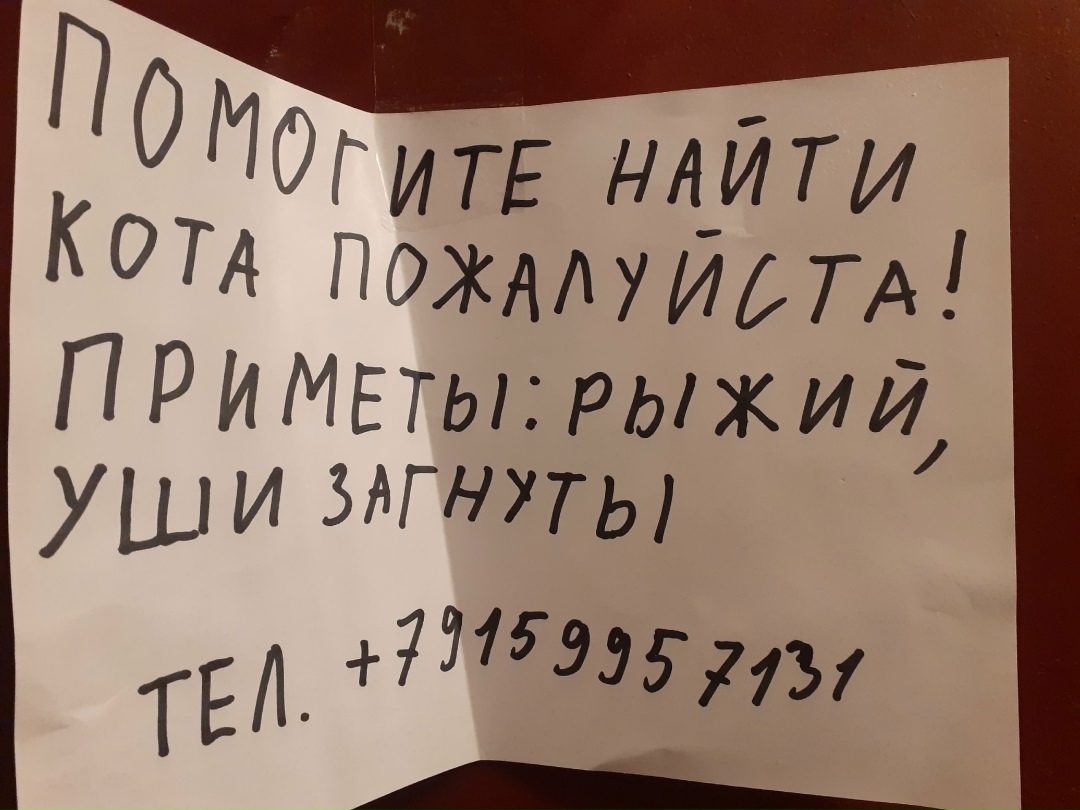 ПОМОГИТЕ НАЙТИ
КОТА ПОЖАЛУЙСТА!
ПРИМЕТЫ: РЫЖИЙ,
УШИ ЗАГНУТЫ
ТЕЛ. +79159957131